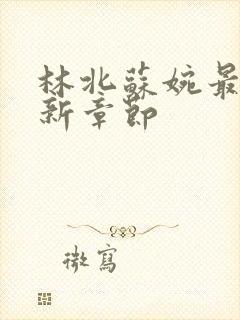 林北蘇婉最
新章節
微寫